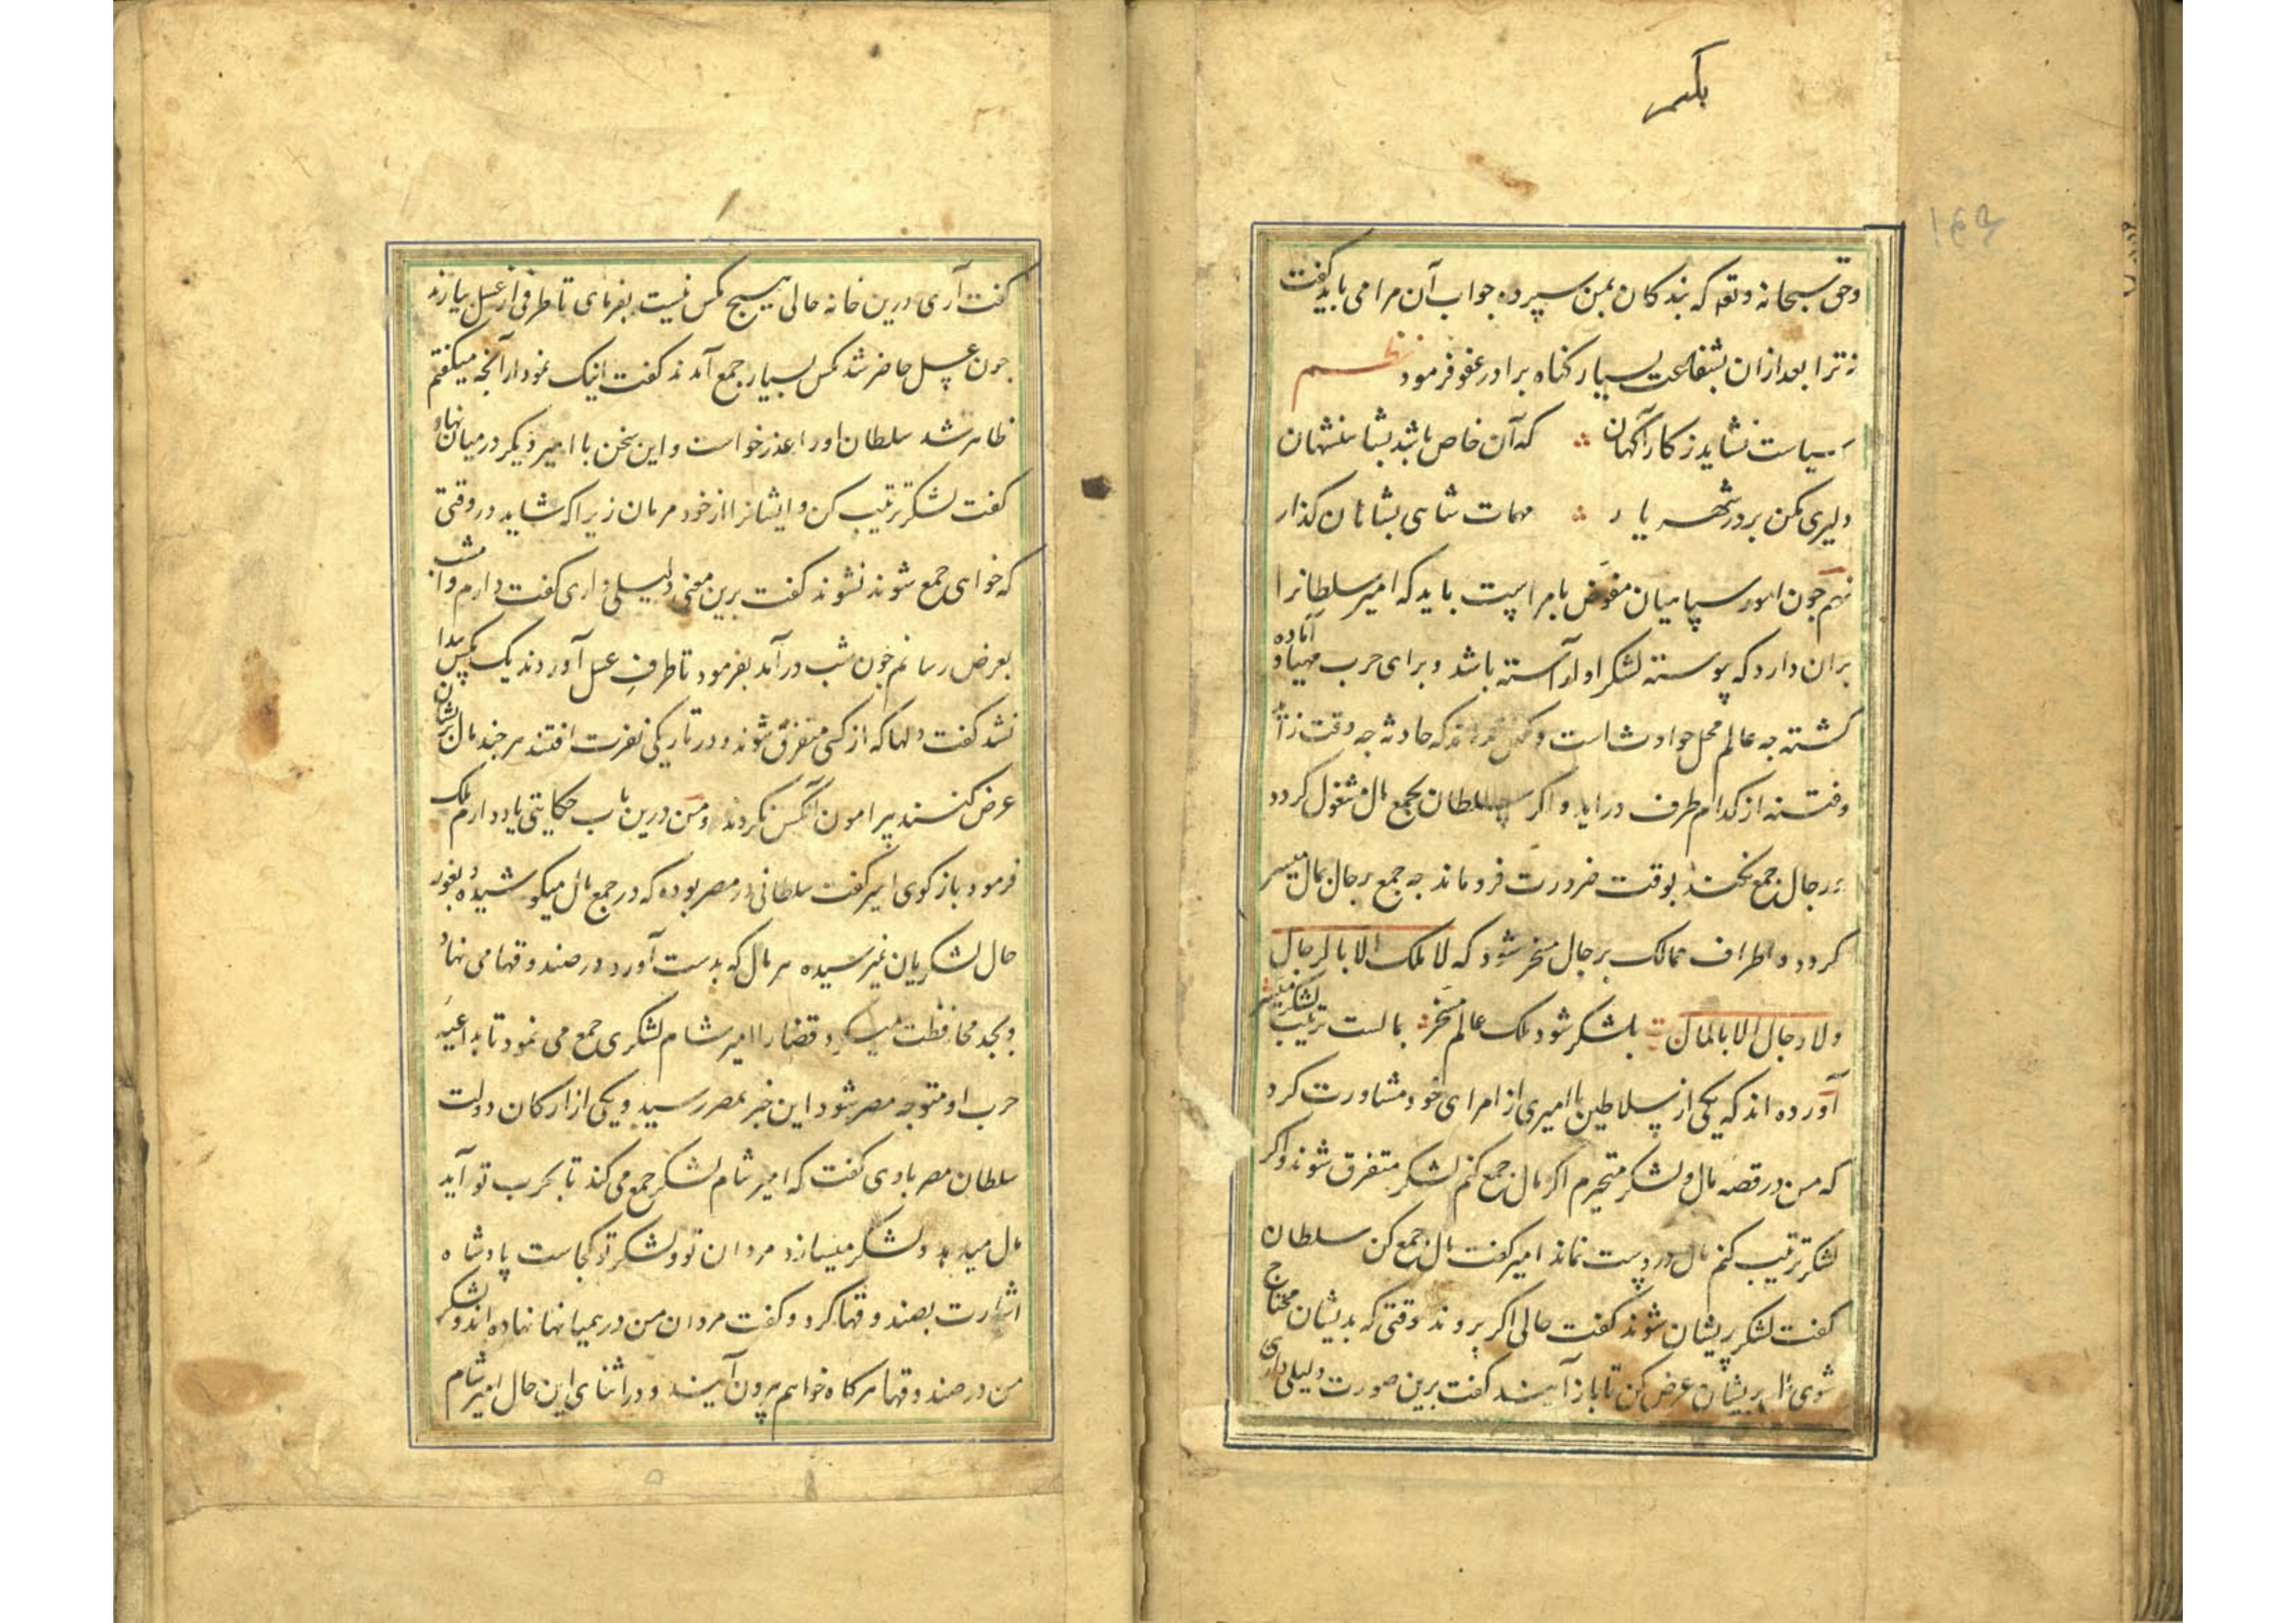 بکیر
۱۴۳
وحق سبحانه وتعه که بندکان بمن سپرده جواب آن مرا می باید کفت
نه ترا بعد ازان بشفاعت بسیار کناه برادر عفو فرمود نظم
سیاست نشاید ز کارآکهان که آن خاص باشد بشاهنشهان
دلیری مکن بر در شهریار مهمات شاهی بشاهان کذار
نهم جون امور سپاهیان مفوض بامراست باید که امیر سلطانرا
بران دارد که پوسته لشکر او آراسته باشد و برای حرب مهیا و آماده
کشته جه عالم محل حوادث است و که حادثه جه وقت زاید
وفتنه از کدام طرف دراید و اکر سلطان بجمع مال مشغول کردد
و رجال جمع نکند بوقت ضرورت فروماند جه جمع رجال بمال میسر
کردد و اطراف ممالک برجال مسخر شود که لا ملک الا بالرجال
ولا رجال الا بالمال بلشکر شود ملک عالم مسخر بمالست ترتیب لشکر میسر
آورده اند که یکی از سلاطین با امیری از امرای خود مشاورت کرد
که من در قصه مال و لشکر متحیرم اکر مال جمع کنم لشکر متفرق شوند واکر
لشکر ترتیب کنم مال در دست نماند امیر کفت مال جمع کن سلطان
کفت لشکر پریشان شوند کفت حالی اکر بروند وقتی که بدیشان محتاج
شوی مال بریشان عرض کن تا باز آیند کفت برین صورت دلیلی داری
کفت آری درین خانه حالی هیسج مکس نیست بفرمای تا ظرفی از عسل بیارند
جون عسل حاضر شد مکس بسیار جمع آمدند کفت اینک نمودار آنجه میکفتم
ظاهر شد سلطان اورا عذر خواست و این سخن با امیر دیکر درمیان نهاد او
کفت لشکر ترتیب کن و ایشانرا از خود مرمان زیرا که شاید در وقتی
که خواهی جمع شوند نشوند کفت برین معنی دلیلی داری کفت دارم و امشب
بعرض رسانم جون شب در آمد بفرمود تا ظرف عسل آوردند یک مکس پیدا
نشد کفت دلها که از کسی متفرق شوند و در تاریکی نفرت افتند هر جند مال بریشان
عرض کنند پیرامون آنکس نکردند و من درین باب حکایتی یاد دارم ملک
فرمود باز کوی امیر کفت سلطانی در مصر بوده که در جمع مال میکوشیده و بغور
حال لشکریان نمیرسیده هر مال که بدست آورد در صندوقها می نهاد
و بجد محافظت میکرد قضا را امیر شام لشکری جمع می نمود تا بداعیه
حرب او متوجه مصر شود این خبر بمصر رسید و یکی از ارکان دولت
سلطان مصر باوی کفت که امیر شام لشکر جمع می کند تا بحرب تو آید
مال میدهد و لشکر میسازد مردان تو و لشکر تو کجاست پادشاه
اشارت بصندوقها کرد و کفت مردان من در همیانها نهاده اند و لشکر
من در صندوقها هرکاه خواهم بیرون آیند و در اثنای این حال امیر شام